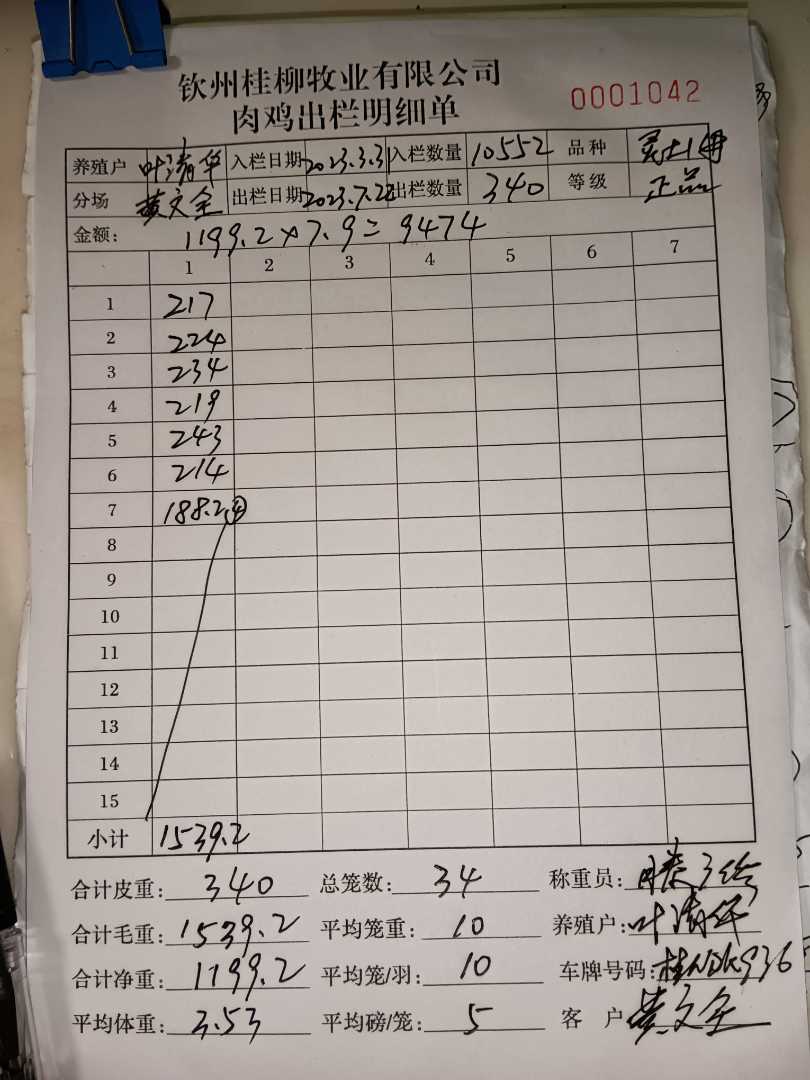 钦州桂柳牧业有限公司
肉鸡出栏明细单 0001042
养殖户 叶清华 入栏日期 2023.3.31 入栏数量 10552 品种
分场 黄文全 出栏日期 2023.7.22 出栏数量 340 等级 正品
金额: 1199.2×7.9=9474
1 2 3 4 5 6 7
1 217
2 224
3 234
4 219
5 243
6 214
7 188.2 ④
8
9
10
11
12
13
14
15
小计 1539.2
合计皮重: 340 总笼数: 34 称重员:
合计毛重: 1539.2 平均笼重: 10 养殖户: 叶清华
合计净重: 1199.2 平均笼/羽: 10 车牌号码: 桂NDK936
平均体重: 3.53 平均磅/笼: 5 客户 黄文全